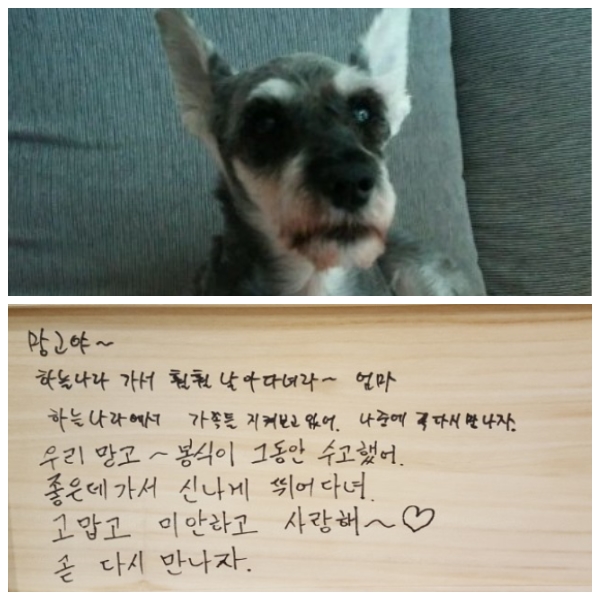 망고야~
하늘나라 가서 훨훨 날아다녀라~ 엄마
하늘나라에서 가족들 지켜보고 있어. 나중에 꼭 다시 만나자.
우리 망고~ 봉식이 그동안 수고했어.
좋은데가서 신나게 뛰어다녀.
고맙고 미안하고 사랑해~♡
곧 다시 만나자.